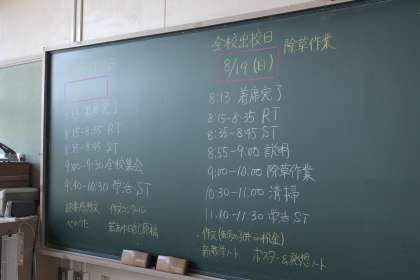 8:13 着席完了
8:15-8:35 RT
8:35-8:45 ST
9:00-9:30 全校集会
9:40-10:30 学活 ST
読書感想文 作文コンクール
全校出校日 除草作業
8/19 (日)
8:13 着席完了
8:15-8:35 RT
8:35-8:45 ST
8:55-9:00 説明
9:00-10:00 除草作業
10:30-11:00 清掃
11:10-11:30 学活 ST
・作文 税金)
ノート ポスター&発想ノート